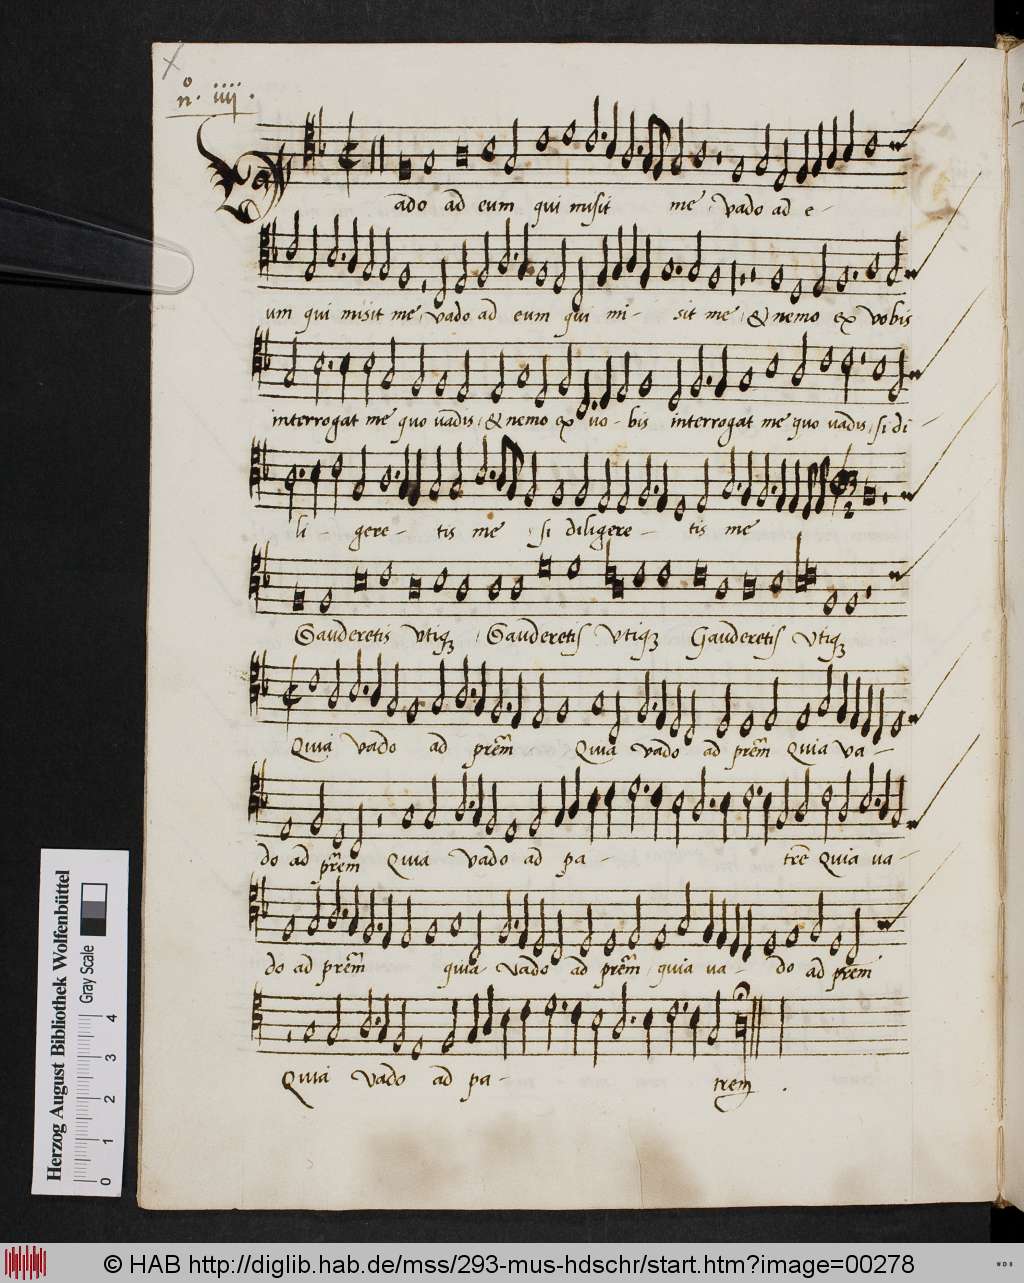 nº. iiij.
Vado ad eum qui misit me, vado ad e-
um qui misit me, vado ad eum qui mi- sit me, & nemo ex vobis
interrogat me quo vadis, & nemo ex vo- bis interrogat me quo vadis, si di-
li- gere- tis me si diligere- tis me
Gauderetis Vtiqꝫ, Gauderetis Vtiqꝫ Gauderetis Vtiqꝫ
Quia vado ad prẽm Quia vado ad prẽm Quia va-
do ad prẽm Quia vado ad pa- trẽ Quia va-
do ad prẽm quia vado ad prẽm, quia va- do ad prẽm
Quia vado ad pa- trem.
Herzog August Bibliothek Wolfenbüttel
Gray Scale
0 1 2 3 4
© HAB http://diglib.hab.de/mss/293-mus-hdschr/start.htm?image=00278